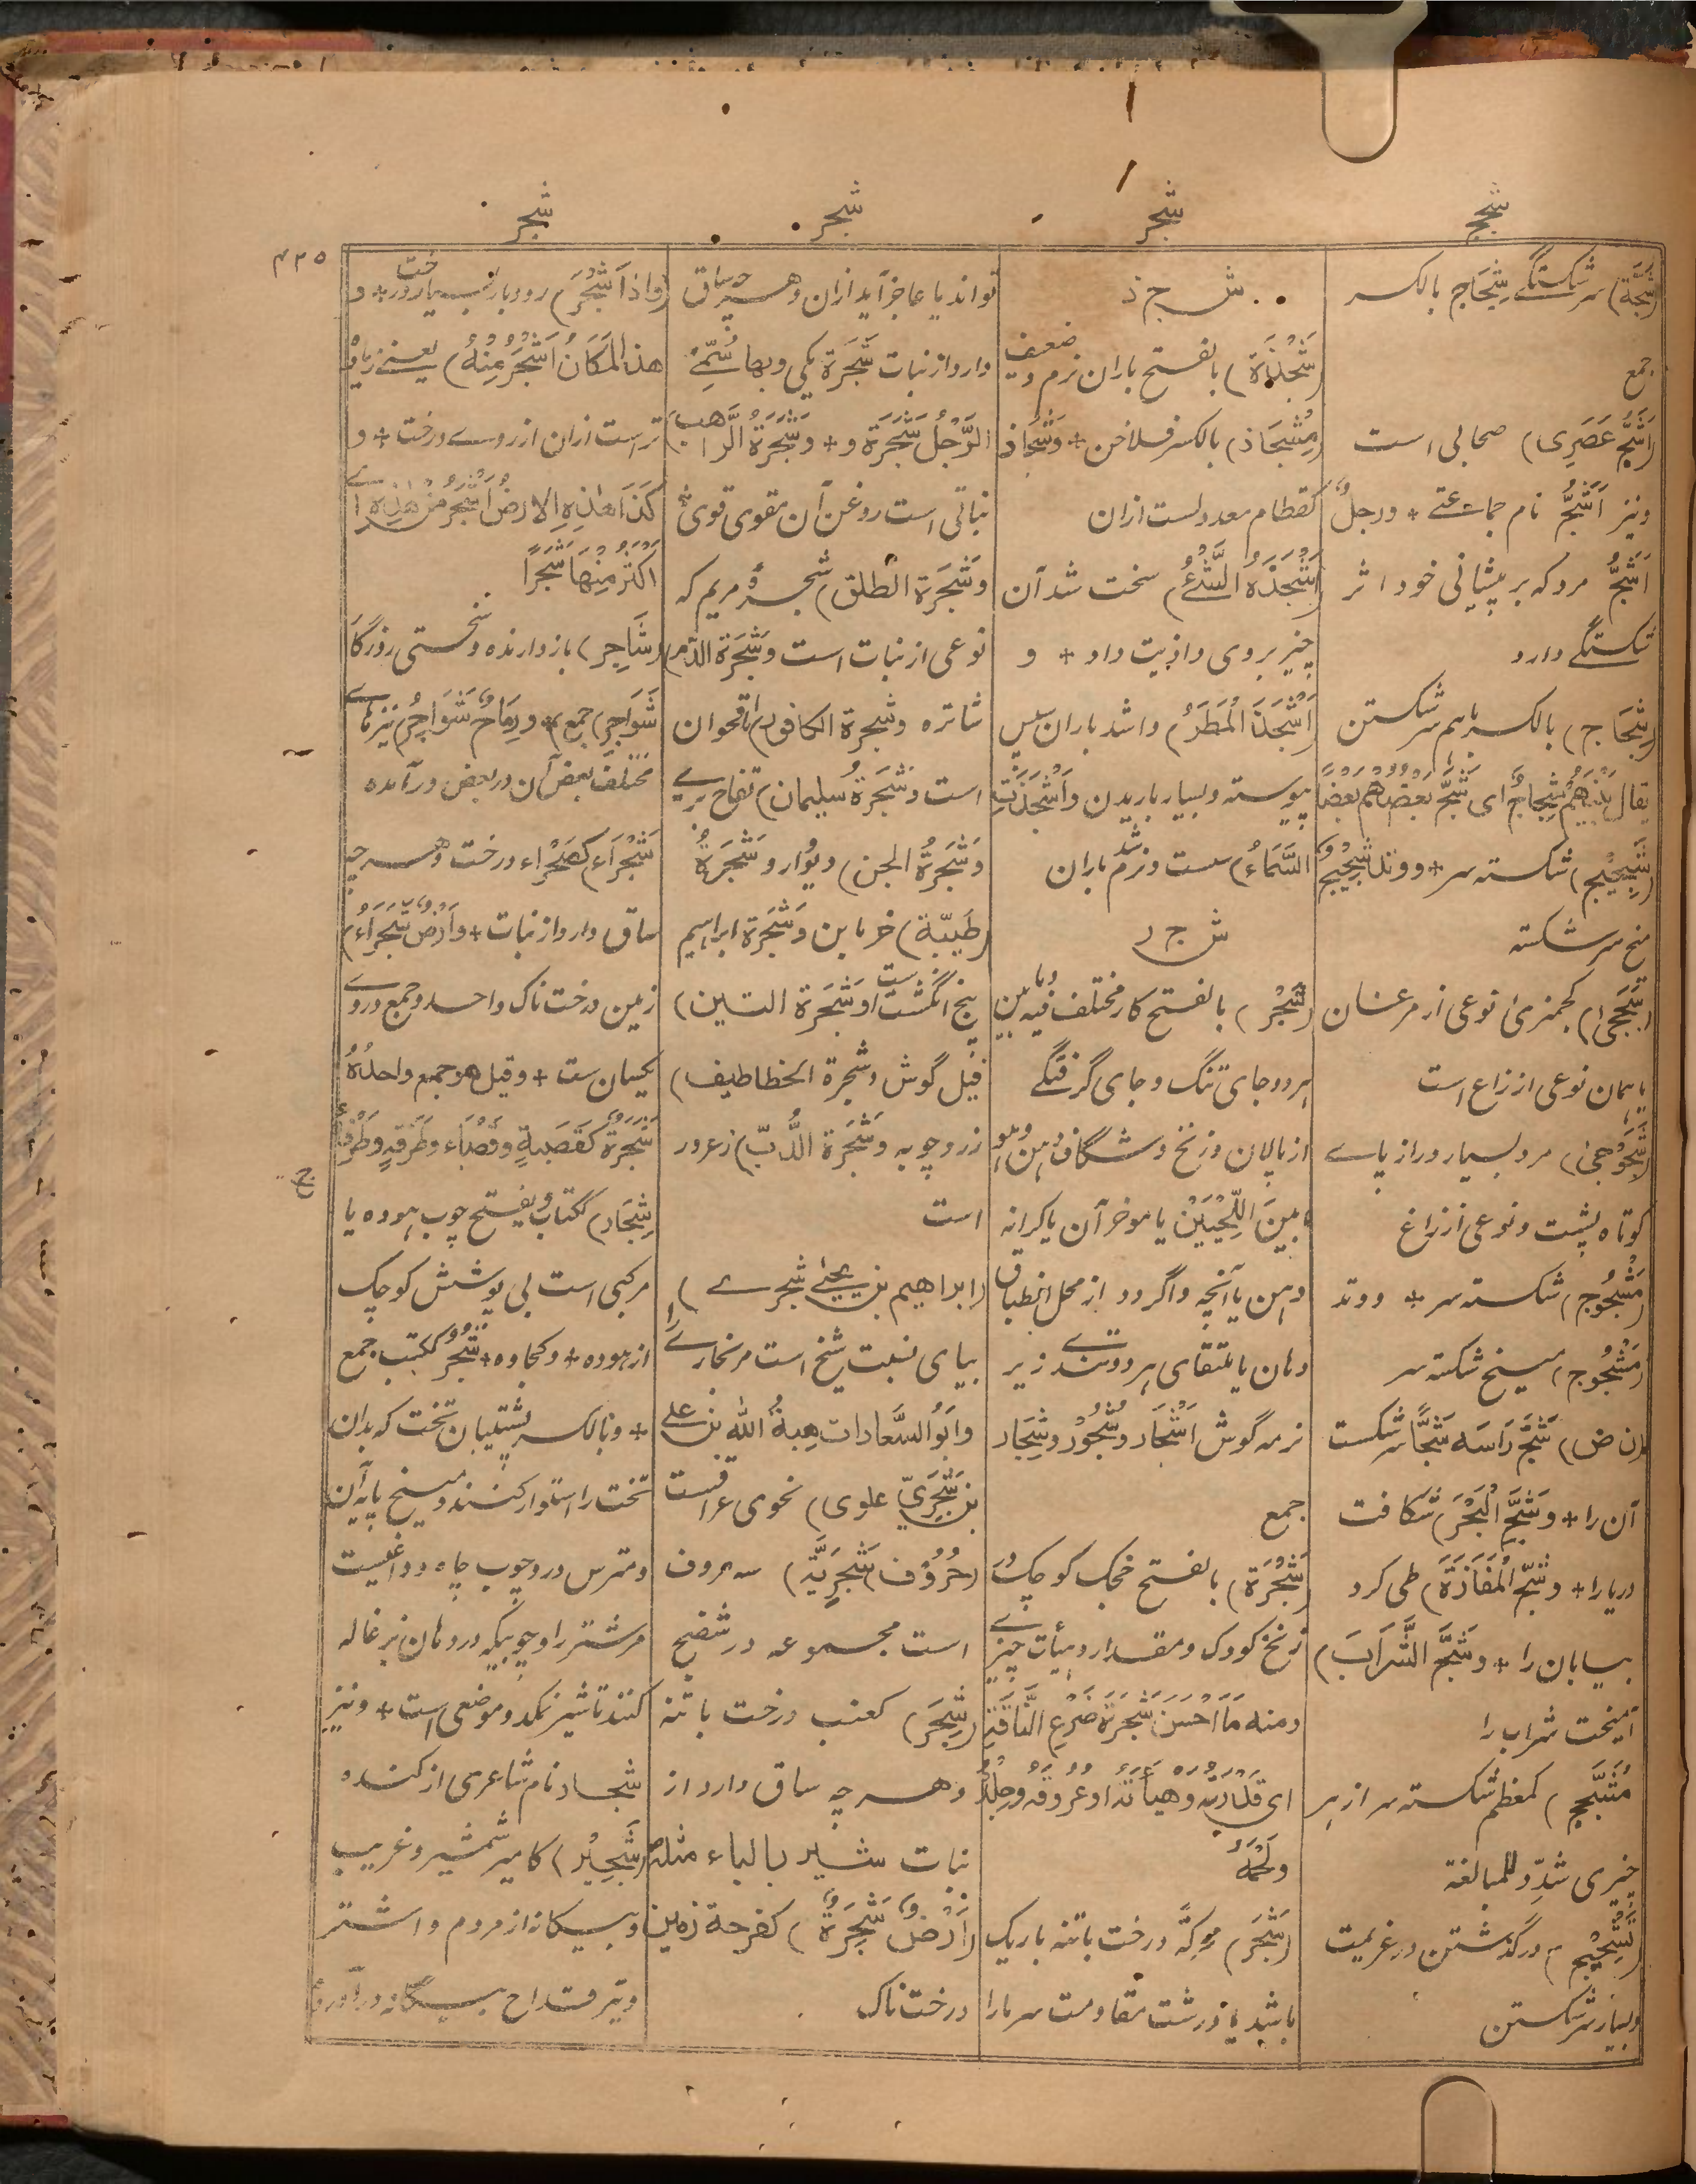 شجج
شجر
شجر
شجر
۴۲۵
(شَجَّة) سر شکستگی شِجَاج بالکسر
جمع
(اَشَجُّ عَصَرِی) صحابی است
ونیز اَشَجُّ نام جماعتے + ورجلٌ
اَشَجُّ مرد که بر پیشانی خود اثر
شکستگے دارد
(شِجَاج) بالکسر باہم سر شکستن
یقال بَیْنَهُمْ شِجَاجٌ ای شَجَّ بَعْضُهُمْ بَعْضًا
(شَجِیْج) شکسته سر + ووتد شَجِیْجٌ
میخ سر شکسته
(شَجَجی) کجمزی نوعی از مرغان
یا ہمان نوعی از زاغ است
(شَجَوْجی) مرد بسیار دراز پاے
کوتاه پشت ونوعی از زاغ
(مَشْجُوج) شکسته سر + ووتد
(مَشْجُوج) میخ شکسته سر
(ن ض) شَجَّ رَاسَه شَجًّا سر شکست
آن را + وَشَجَّ الْبَحْرَ) شکافت
دریا را + وَشَجَّ الْمَفَازَةَ) طی کرد
بیابان را + وَشَجَّ الشَّرَابَ)
آمیخت شراب را
مُشَجَّج) کمعظم شکسته سر از ہر
چیزی شدّد للمبالغة
(تَشْجِیْج) درگذشتن در عزیمت
وبسیار سر شکستن
ش ج ذ
(شَجْذَة) بالفتح باران نرم و ضعیف
(مِشْجَاذ) بالکسر فلاخن + وَشَجَاذِ
کقطام معدولست ازان
(اَشْجَذَهُ الشَّئُ) سخت شد آن
چیز بروی واذیت داد + و
اَشْجَذَ الْمَطَرُ) واشد باران سپس
پیوسته وبسیار باریدن وَاَشْجَذَتِ
السَّمَاءُ) سست ونرم شد باران
ش ج ر
(شَجْر) بالفتح کار مختلف فیه ومابین
ہر دو جای تنگ و جای گرفتگے
از پالان وزنخ وشگاف دہن
مابین اللَّحْیَیْن یا موخر آن یا کرانه
دہن یا آنچه واگردد از محل انطباق
دہان یا ملتقای ہر دو تندے زیر
نرمه گوش اَشْجَار وشُجُوْر وشِجَار
جمع
(شَجْرَة) بالفتح خجک کوچک
زنخ کودک ومقدار وہیأت چیزے
ومنه مَا اَحْسَنَ شَجَرَةَ ضَرْعِ النَّاقَةِ
ای قَدْرَهُ وَهَیْأَتَهُ اَوْ عُرُوْقَهُ وَجِلْدَهُ
وَلَحْمَهُ
(شَجَر) محرکّة درخت باتنه باریک
باشد یا درشت مقاومت سرما را
تواند یا عاجز آید ازان وہر چه ساق
دارد از نبات شَجَرَة یکی وبها سُمّی
الرَّجُلُ شَجَرَة و + وَشَجَرَةُ الرَّاهِب)
نباتی است روغن آن مقوی قوی
وَشَجَرَة الطلق) شجرۂ مریم که
نوعی از نبات است وَشَجَرَة الدّم
شاتره وشجرة الکافور) اقحوان
است وَشَجَرَةُ سلیمان) تفاح بریے
وَشَجَرَةُ الجن) دیودار وَشَجَرَةُ
(طَیّبَة) خرما بن وَشَجَرَة ابراہیم
پنج انگشت است اوشَجَرَة التنین)
فیل گوش وشجرة الخطاطیف)
زردچوبه وَشَجَرَة الدُّبّ) زعرور
است
(ابراهیم بن یحییٰ شجرے)
بیای نسبت شیخ است مر بخارے را
وابوُالسَّعَادات هِبةُ اللّٰه بن علے
بن شَجَرِیّ علوی) نحوی عراقست
(حُرُوْف شَجَرِیَّة) سه حروف
است مجموعه در شضج
(شِجَر) کعنب درخت باتنه
وہر چه ساق دارد از
نبات شِیَر بالیاء مثله
(اَرْضٌ شَجِرَةٌ) کفرحة زمین
درخت ناک
(وادٍ اَشْجَر) رودبار بسیار درخت + و
هذ الْمَکَانُ اَشْجَرُ مِنْهُ) یعنے زیاده
تر است ازان از روے درخت + و
کَذَا هٰذِهِ الارْضُ اَشْجَرُ مِنْ هٰذِهِ اے
اَکْثَرُ مِنْهَا شَجَرًا
(شَاجِر) بازدارنده وسختی روزگار
شَوَاجِر) جمع + ورِمَاحٌ شَوَاجِرُ) نیزہاے
مختلف بعض آن در بعض درآمده
شَجْرَاء) کصَحْرَاء درخت وہر چه
ساق دارد از نبات + وَاَرْضٌ شَجْرَاءُ)
زمین درخت ناک واحد وجمع دروے
یکسان ست + وقیل هو جمع واحدُهُ
شَجَرَةٌ کَقَصَبَةٍ وقَصْبَاء وطَرَفَةٍ وطَرْفَاءُ
شِجَار) ککتاب وبفتح چوب ہوده یا
مرکبی است بی پوشش کوچک
از ہوده + وکجاوه + شُجُرٌ ککتب جمع
+ وبالکسر پشتیبان تخت که بدان
تخت را استوار کنند ومیخ پایه آن
ومترس در وچوب چاه ودواغیست
مر شتر را وچوبیکه در دہان بزغاله
کنند تا شیر نمکد وموضعی است + ونیز
شجار نام شاعری از کنده
(شَجِیْر) کامیر شمشیر وغریب
وبیگانه از مردم واشتر
وتیر قداح بیگانه درآورده
ج